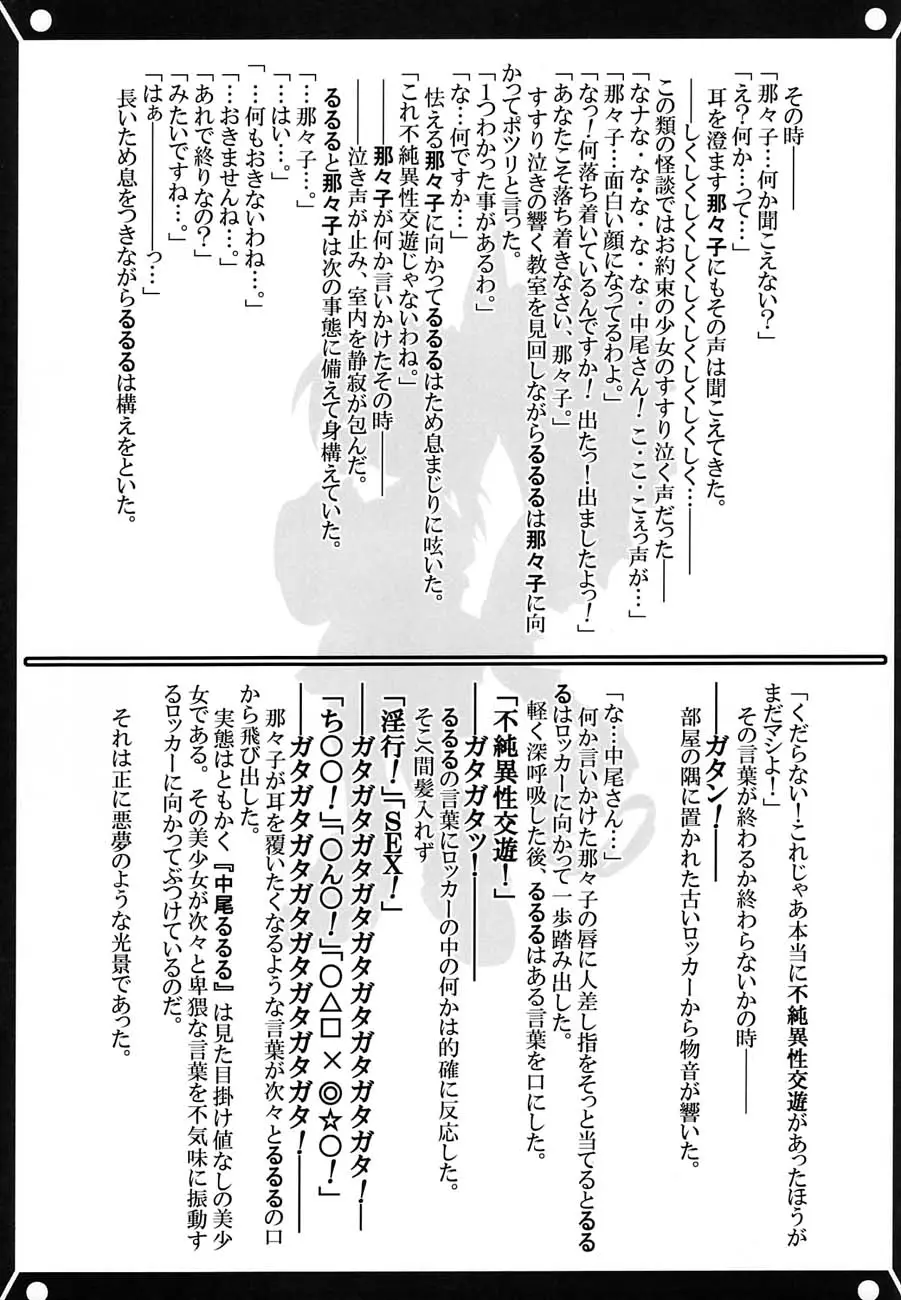 その時――
「那々子…何か聞こえない？」
「え？何か…って…」
耳を澄ます那々子にもその声は聞こえてきた。
――しくしくしくしくしくしくしく…――
この類の怪談ではお約束の少女のすすり泣く声だった――
「なナな・な・な・な・な・中尾さん！こ・こ・こえっ声が…」
「那々子…面白い顔になってるわよ。」
「なっ！何落ち着いているんですか！出たっ！出ましたよっ！」
「あなたこそ落ち着きなさい、那々子。」
すすり泣きの響く教室を見回しながらるるるは那々子に向
かってポツリと言った。
「１つわかった事があるわ。」
「な…何ですか…」
怯える那々子に向かってるるるはため息まじりに呟いた。
「これ不純異性交遊じゃないわね。」
――那々子が何か言いかけたその時――
――泣き声が止み、室内を静寂が包んだ。
るるると那々子は次の事態に備えて身構えていた。
「…那々子…。」
「…はい…。」
「…何もおきないわね…。」
「…おきませんね…。」
「あれで終りなの？」
「みたいですね…。」
「はぁ――――っ…」
長いため息をつきながらるるるは構えをといた。
「くだらない！これじゃあ本当に不純異性交遊があったほうが
まだマシよ！」
その言葉が終わるか終わらないかの時――
――ガタン！――
部屋の隅に置かれた古いロッカーから物音が響いた。
「な…中尾さん…」
何か言いかけた那々子の唇に人差し指をそっと当てるとるる
るはロッカーに向かって一歩踏み出した。
軽く深呼吸した後、るるるはある言葉を口にした。
「不純異性交遊！」
――ガタガタッ！――
るるるの言葉にロッカーの中の何かは的確に反応した。
そこへ間髪入れず
「淫行！」「SEX！」
――ガタガタガタガタガタガタガタガタガタ！――
「ち〇〇！」「〇ん〇！」「〇△□×◎☆〇！」
――ガタガタガタガタガタガタガタガタガタ！――
那々子が耳を覆いたくなるような言葉が次々とるるるの口
から飛び出した。
実態はともかく『中尾るるる』は見た目掛け値なしの美少
女である。その美少女が次々と卑猥な言葉を不気味に振動す
るロッカーに向かってぶつけているのだ。
それは正に悪夢のような光景であった。